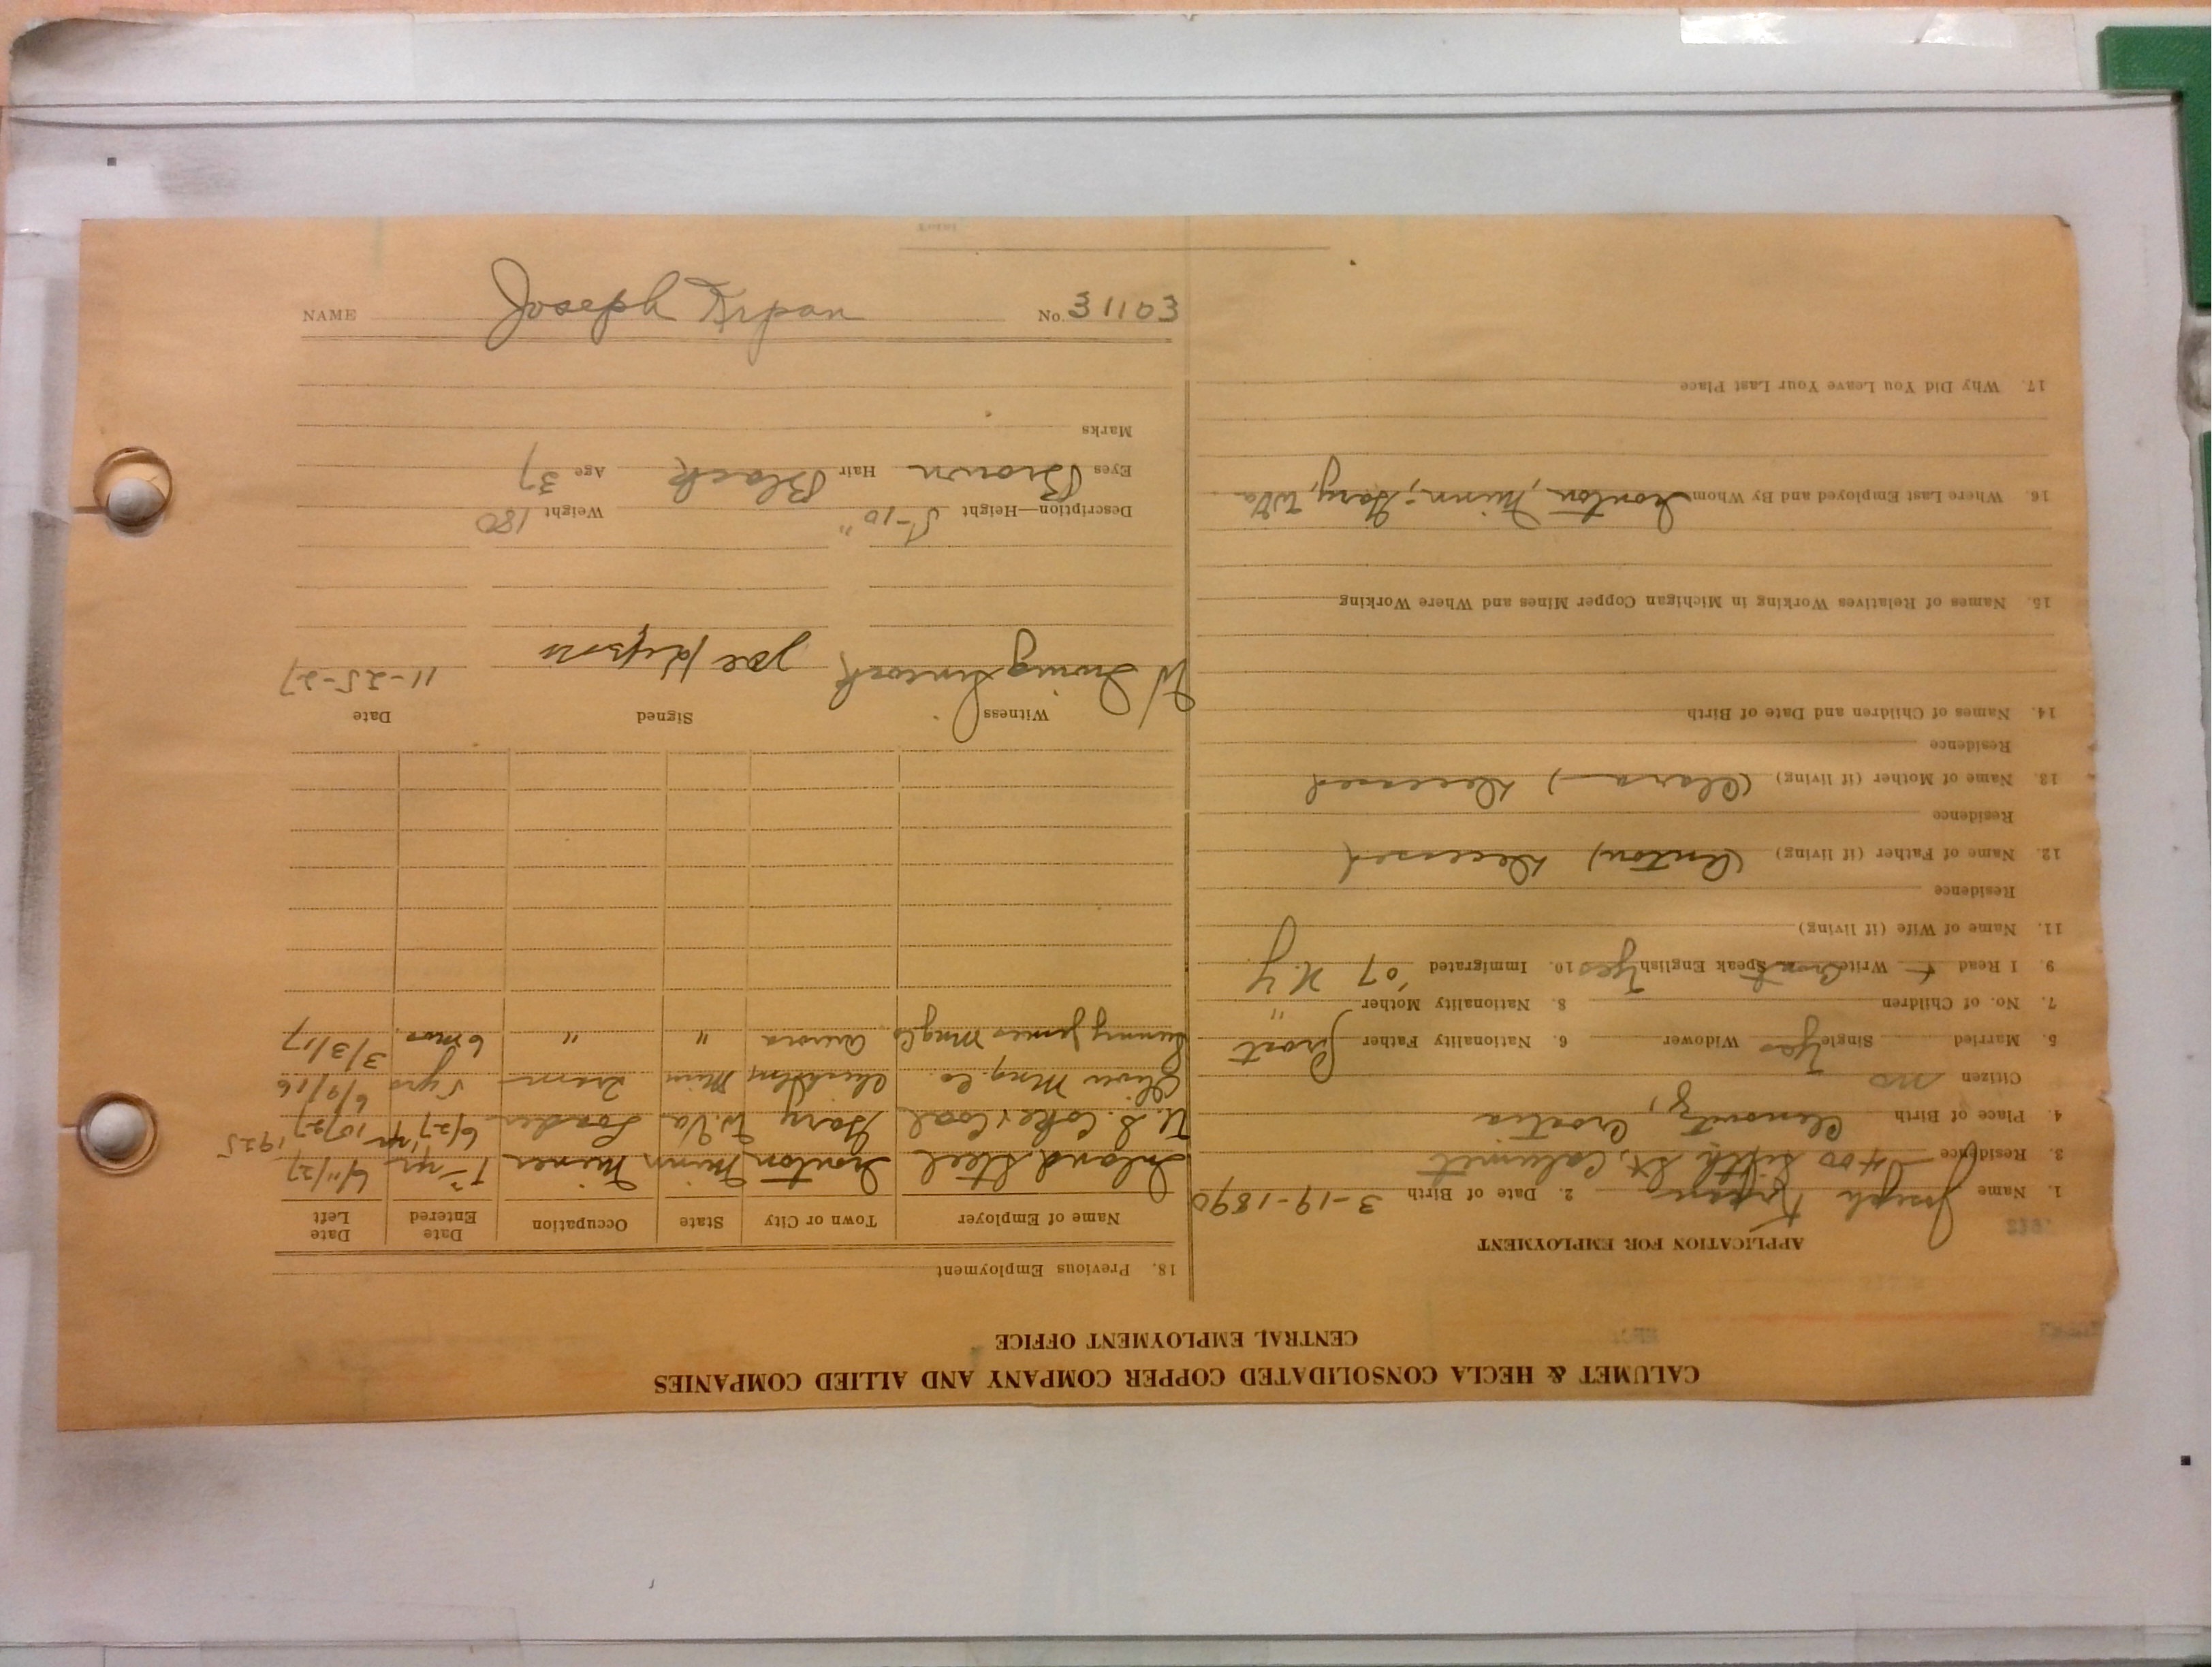 CALUMET & HECLA CONSOLIDATED COPPER COMPANY AND ALLIED COMPANIES
CENTRAL EMPLOYMENT OFFICE
APPLICATION FOR EMPLOYMENT
1. Name Joseph Krpan 2. Date of Birth 3-19-1890
3. Residence 400 Fifth St, Calumet
4. Place of Birth Croatia
Citizen no
5. Married Single Yes Widower 6. Nationality Father Croat
7. No. of Children 8. Nationality Mother "
9. I Read Write Croat Speak English Yes 10. Immigrated '07 N.Y
11. Name of Wife (if living)
Residence
12. Name of Father (if living) (Anton) Deceased
Residence
13. Name of Mother (if living) (Clara) Deceased
Residence
14. Names of Children and Date of Birth
15. Names of Relatives Working in Michigan Copper Mines and Where Working
16. Where Last Employed and By Whom Ironton, Minn; Gary, W.Va
17. Why Did You Leave Your Last Place
18. Previous Employment
Name of Employer Town or City State Occupation Date Entered Date Left
Inland Steel Ironton Minn Miner 6/11/27 1925
U.S. Coke & Coal Gary W.Va Loader 6/27 10/27
Oliver Mng. Co. Chisholm Minn 5 yrs 6/9/16
Mng Co Aurora " " 6 mos. 3/3/17
Witness Signed Date
W Irving Joe Krpan 11-25-27
Description—Height 5-10" Weight 180
Eyes Brown Hair Black Age 37
Marks
NAME Joseph Krpan No. 31103